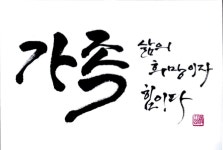 가족
삶의
희망이자
힘이다